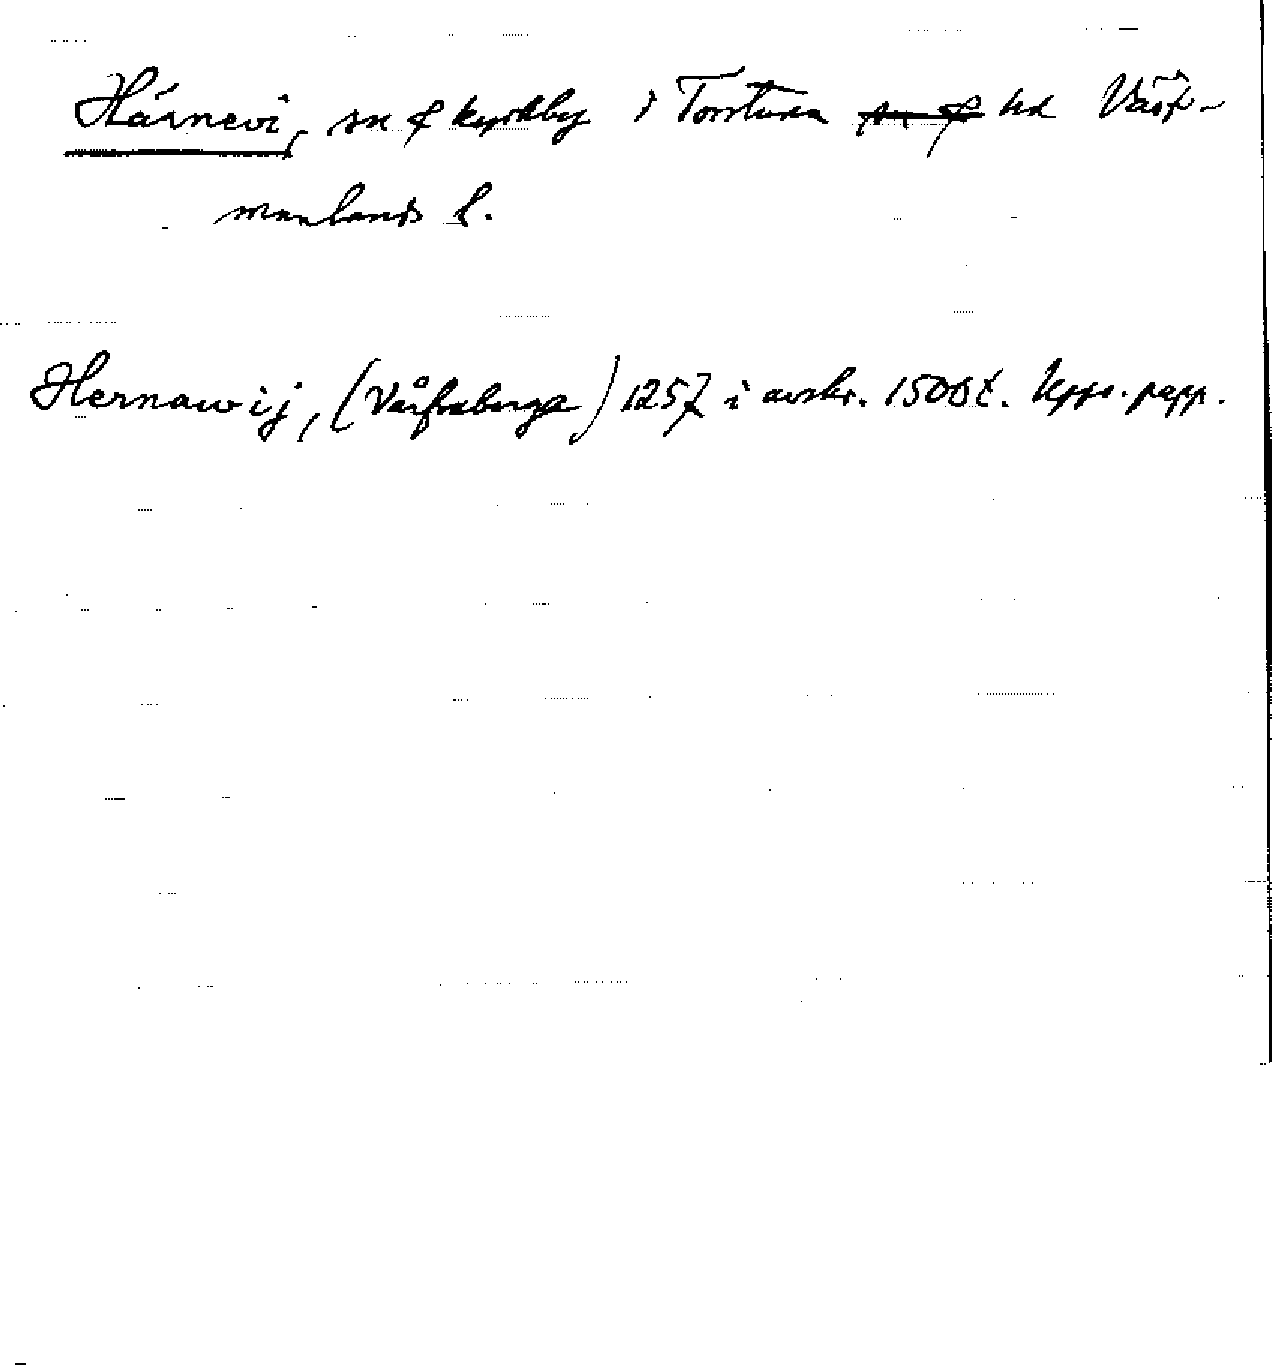 Härnevi, sn o kyrkby i Torstuna sn o hd Väst-
manlands l.
Hernawij, (Vårfruberga) 1257 i avskr. 1500t. Upps. papp.